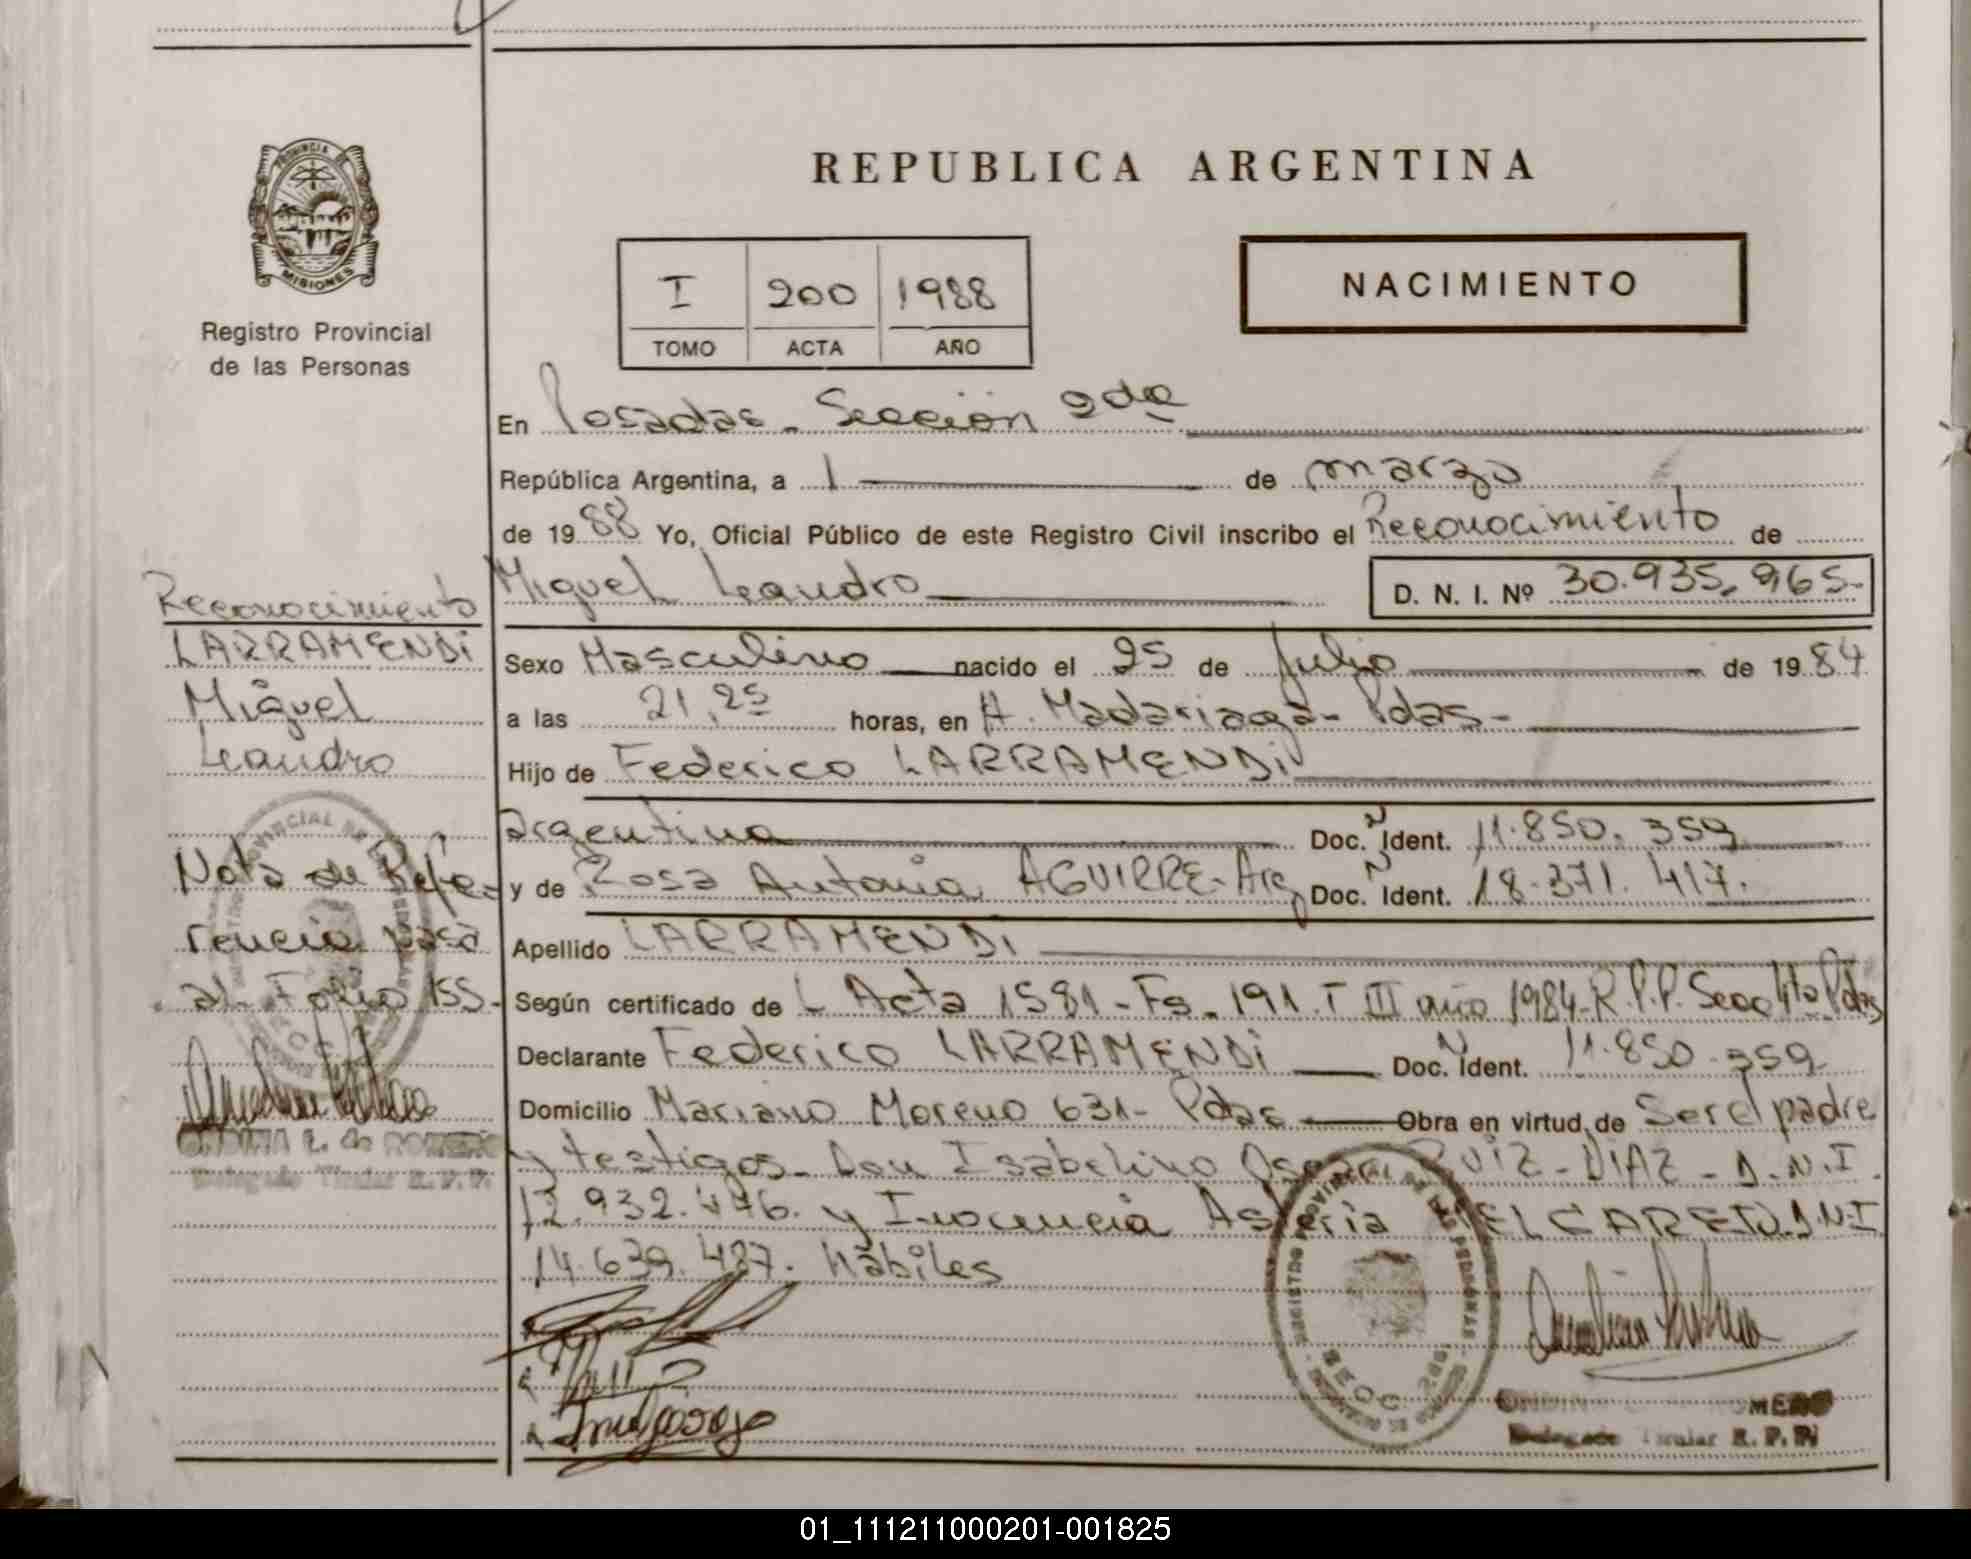 PROVINCIA DE
MISIONES
Registro Provincial
de las Personas
REPUBLICA ARGENTINA
I 200 1988
TOMO ACTA AÑO
NACIMIENTO
En Posadas - Sección 2da
República Argentina, a 1 de marzo
de 1988 Yo, Oficial Público de este Registro Civil inscribo el Reconocimiento de
Miguel Leandro D. N. I. Nº 30.935.965-
Sexo Masculino nacido el 25 de Julio de 1984
a las 21,25 horas, en H. Madariaga - Pdas -
Hijo de Federico LARRAMENDi
argentino Doc. Ident. 11.850.359
y de Rosa Antonia AGUIRRE - Arg Doc. Ident. 18.371.417.
Apellido LARRAMENDi
Según certificado de L Acta 1581 - Fs. 191. T III año 1984 - R.P.P. Secc 4ta Pdas
Declarante Federico LARRAMENDi Doc. Ident. 11.850.359
Domicilio Mariano Moreno 631 - Pdas Obra en virtud de Ser el padre
y testigos - Don Isabelino RUIZ - DIAZ - D.N.I.
12.932.446. y Inocencia D.N.I
14.639.487. Hábiles
Reconocimiento
LARRAMENDi
Miguel
Leandro
Nota de Refe-
rencia pasa
al Folio 155-
L. de ROMERO
Delegado Titular R. P. P.
Delegado Titular R. P. P.
01_111211000201-001825